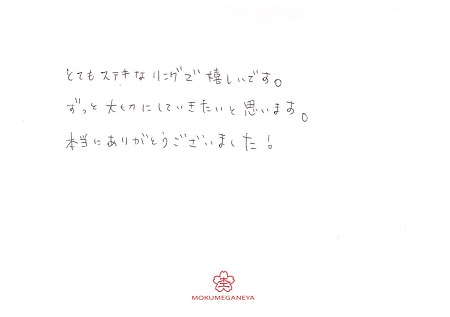 とてもステキなリングで嬉しいです。
ずっと大切にしていきたいと思います。
本当にありがとうございました!
MOKUMEGANEYA